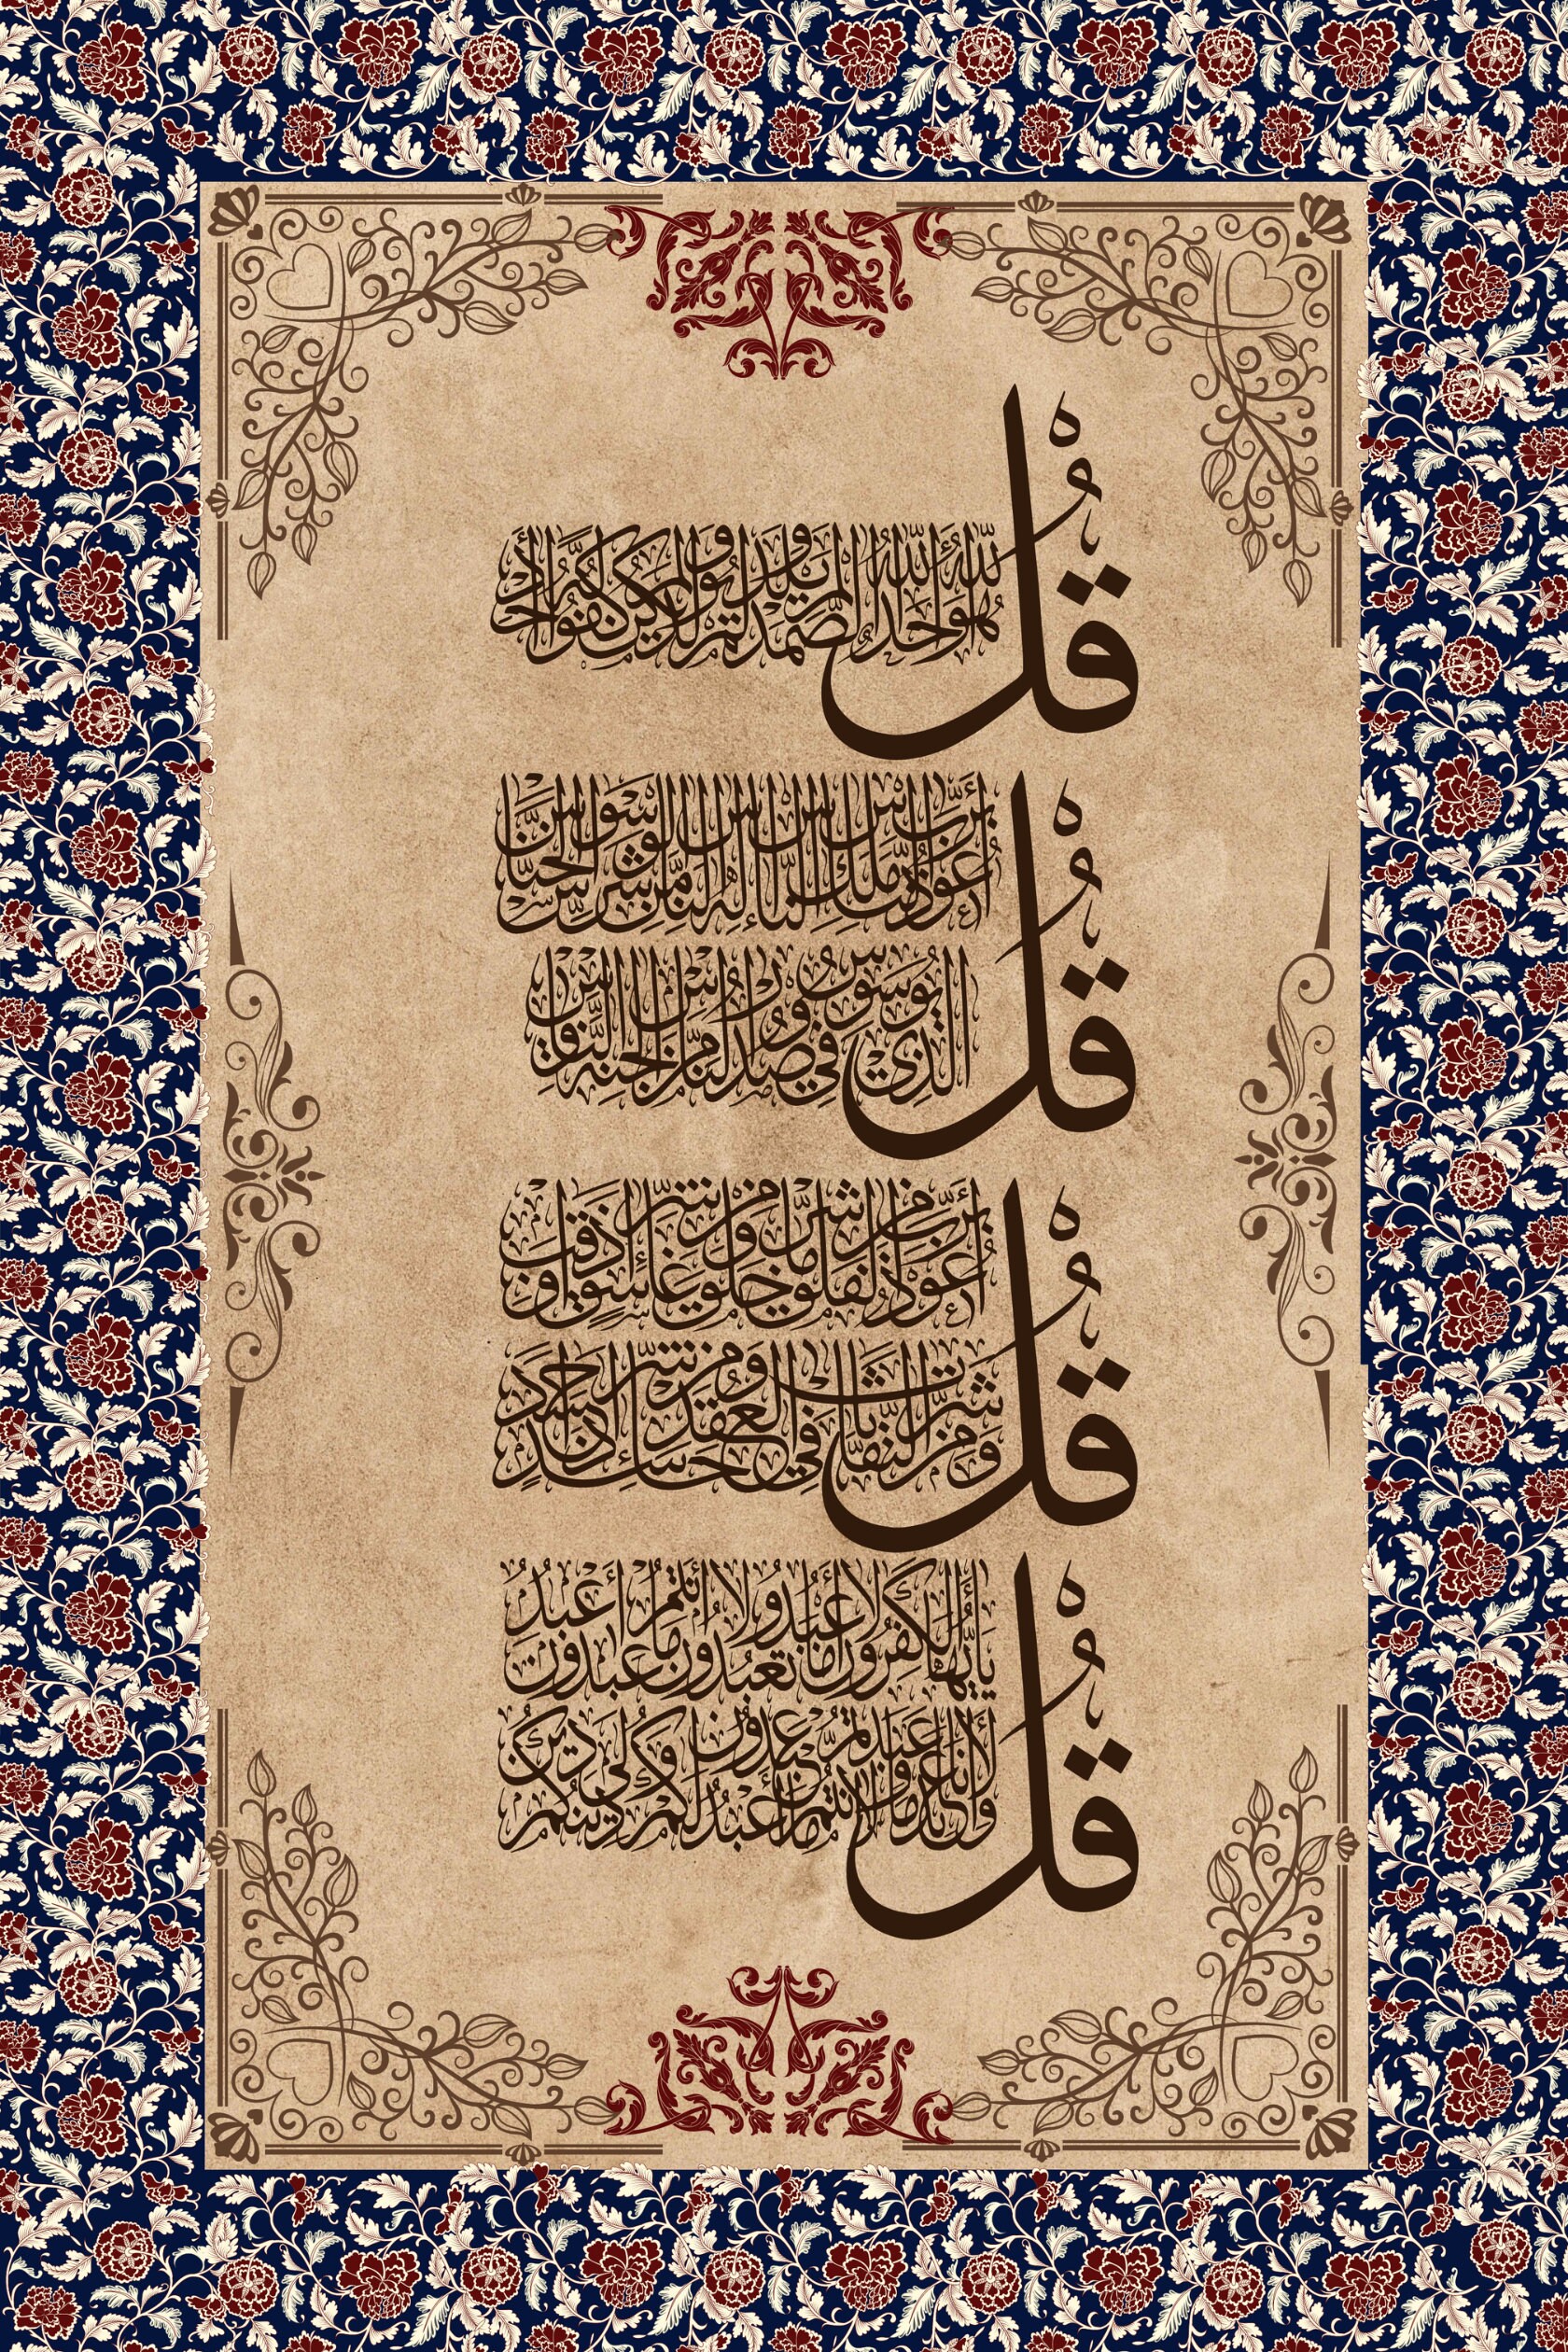 قُلْ هُوَ اللَّهُ أَحَدٌ اللَّهُ الصَّمَدُ لَمْ يَلِدْ وَلَمْ يُولَدْ وَلَمْ يَكُن لَّهُ كُفُوًا أَحَدٌ
قُلْ أَعُوذُ بِرَبِّ النَّاسِ مَلِكِ النَّاسِ إِلَٰهِ النَّاسِ مِن شَرِّ الْوَسْوَاسِ الْخَنَّاسِ
الَّذِي يُوَسْوِسُ فِي صُدُورِ النَّاسِ مِنَ الْجِنَّةِ وَالنَّاسِ
قُلْ أَعُوذُ بِرَبِّ الْفَلَقِ مِن شَرِّ مَا خَلَقَ وَمِن شَرِّ غَاسِقٍ إِذَا وَقَبَ
وَمِن شَرِّ النَّفَّاثَاتِ فِي الْعُقَدِ وَمِن شَرِّ حَاسِدٍ إِذَا حَسَدَ
قُلْ يَا أَيُّهَا الْكَافِرُونَ لَا أَعْبُدُ مَا تَعْبُدُونَ وَلَا أَنتُمْ عَابِدُونَ مَا أَعْبُدُ
وَلَا أَنَا عَابِدٌ مَّا عَبَدتُّمْ وَلَا أَنتُمْ عَابِدُونَ مَا أَعْبُدُ لَكُمْ دِينُكُمْ وَلِيَ دِينِ